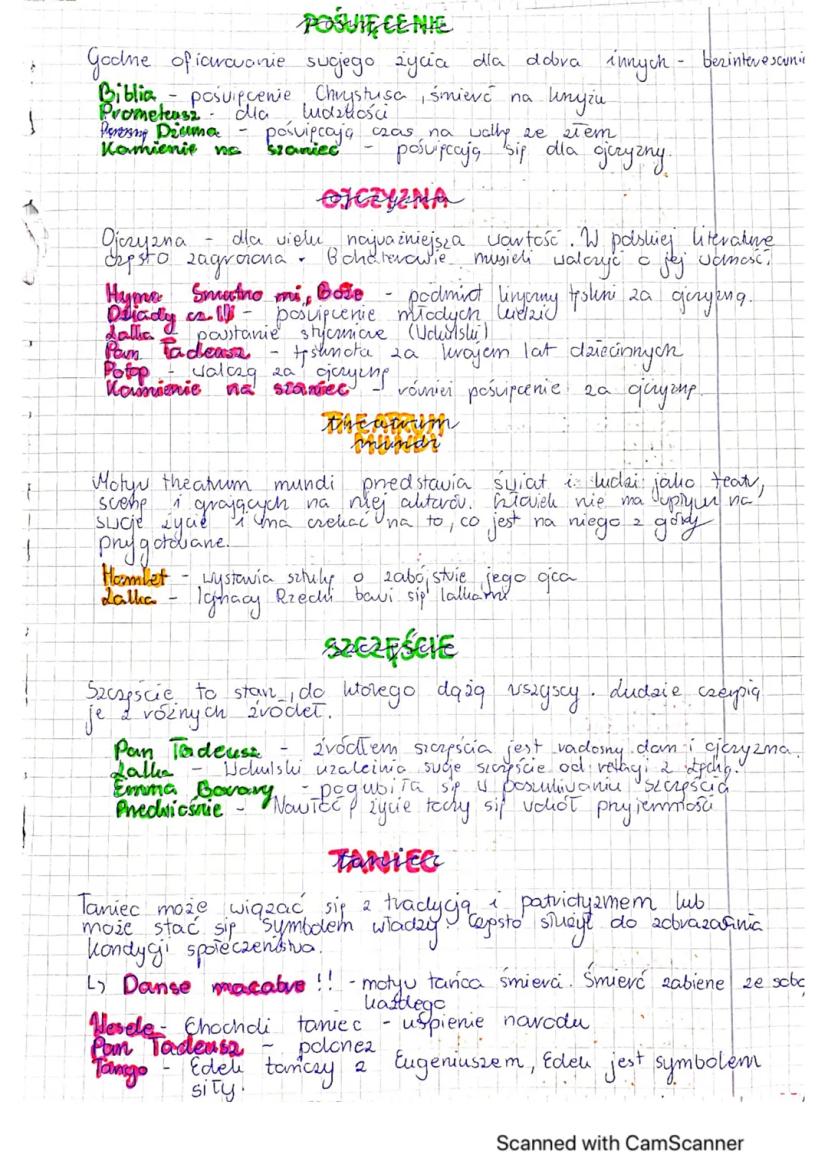 POŚWIĘCENIE
Godne ofiarowanie swojego życia dla dobra innych - bezinteresowni
Biblia - poświęcenie Chrystusa, śmierć na krzyżu
Prometeusz - dla ludzkości
Dżuma - poświęcają czas na walkę ze złem
Kamienie na szaniec - poświęcają się dla ojczyzny.
OJCZYZNA
Ojczyzna - dla wielu najważniejsza wartość. W polskiej literaturze
często zagrożona. Bohaterowie musieli walczyć o jej wolność.
Hymn Smutno mi, Boże - podmiot liryczny tęskni za ojczyzną.
Dziady cz. III - poświęcenie młodych ludzi
Lalka - powstanie styczniowe (Wokulski)
Pan Tadeusz - tęsknota za krajem lat dziecinnych
Potop - walczą za ojczyznę
Kamienie na szaniec - również poświęcenie za ojczyznę.
THEATRUM
MUNDI
Motyw theatrum mundi przedstawia świat i ludzi jako teatr,
scenę i grających na niej aktorów. Człowiek nie ma wpływu na
swoje życie i ma czekać na to, co jest na niego z góry
przygotowane.
Hamlet - wystawia sztukę o zabójstwie jego ojca
Lalka - Ignacy Rzecki bawi się lalkami
SZCZĘŚCIE
Szczęście to stan, do którego dążą wszyscy. Ludzie czerpią
je z różnych źródeł.
Pan Tadeusz - źródłem szczęścia jest radosny dom i ojczyzna.
Lalka - Wokulski uzależnia swoje szczęście od relacji z Łęcką.
Emma Bovary - pogubiła się w poszukiwaniu szczęścia
Przedwiośnie - Nawłoć, życie toczy się wokół przyjemności
TANIEC
Taniec może wiązać się z tradycją i patriotyzmem lub
może stać się symbolem władzy. Często służył do zobrazowania
kondycji społeczeństwa.
↳ Danse macabre !! - motyw tańca śmierci. Śmierć zabierze ze sobą
każdego
Wesele - Chocholi taniec - uśpienie narodu
Pan Tadeusz - polonez
Tango - Edek tańczy z Eugeniuszem, Edek jest symbolem
siły.
Scanned with CamScanner